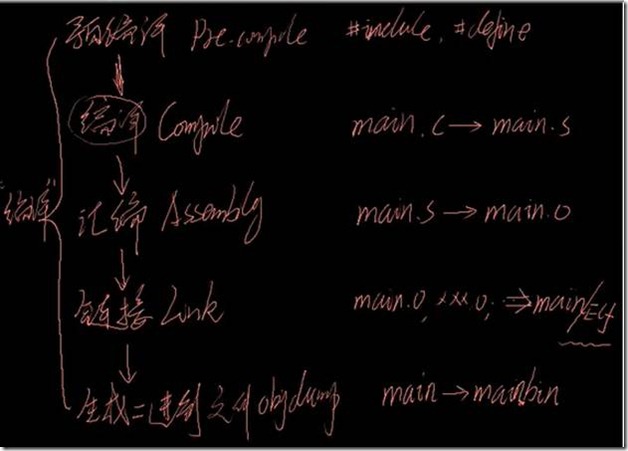 预编译 Pre-compile #include, #define
编译 Compile main.c → main.s
"编译"
汇编 Assembly main.s → main.o
链接 Link main.o, xxx.o, ⇒ main/Elf
生成二进制文件 objdump main → mainbin